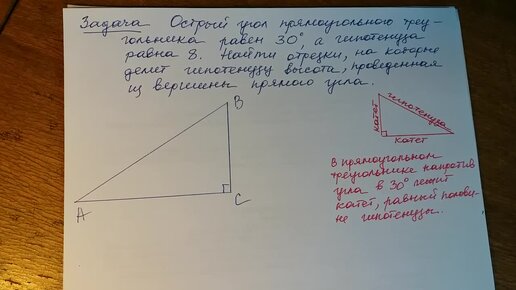 Задача Острый угол прямоугольного треу-
гольника равен 30°, а гипотенуза
равна 8. Найти отрезки, на которые
делит гипотенузу высота, проведенная
из вершины прямого угла.
B
A
C
гипотенуза
катет
катет
В прямоугольном
треугольнике напротив
угла в 30° лежит
катет, равный полови-
не гипотенузы.